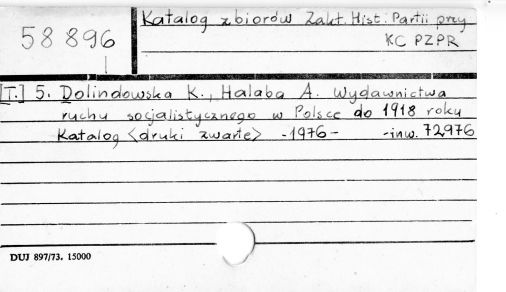 58 896
Katalog zbiorów Zakł. Hist. Partii przy
KC PZPR
[T.] 5. Dolindowska K., Halaba A. Wydawnictwa
ruchu socjalistycznego w Polsce do 1918 roku
Katalog <druki zwarte> -1976- -inw. 72976
DUJ 897/73. 15000